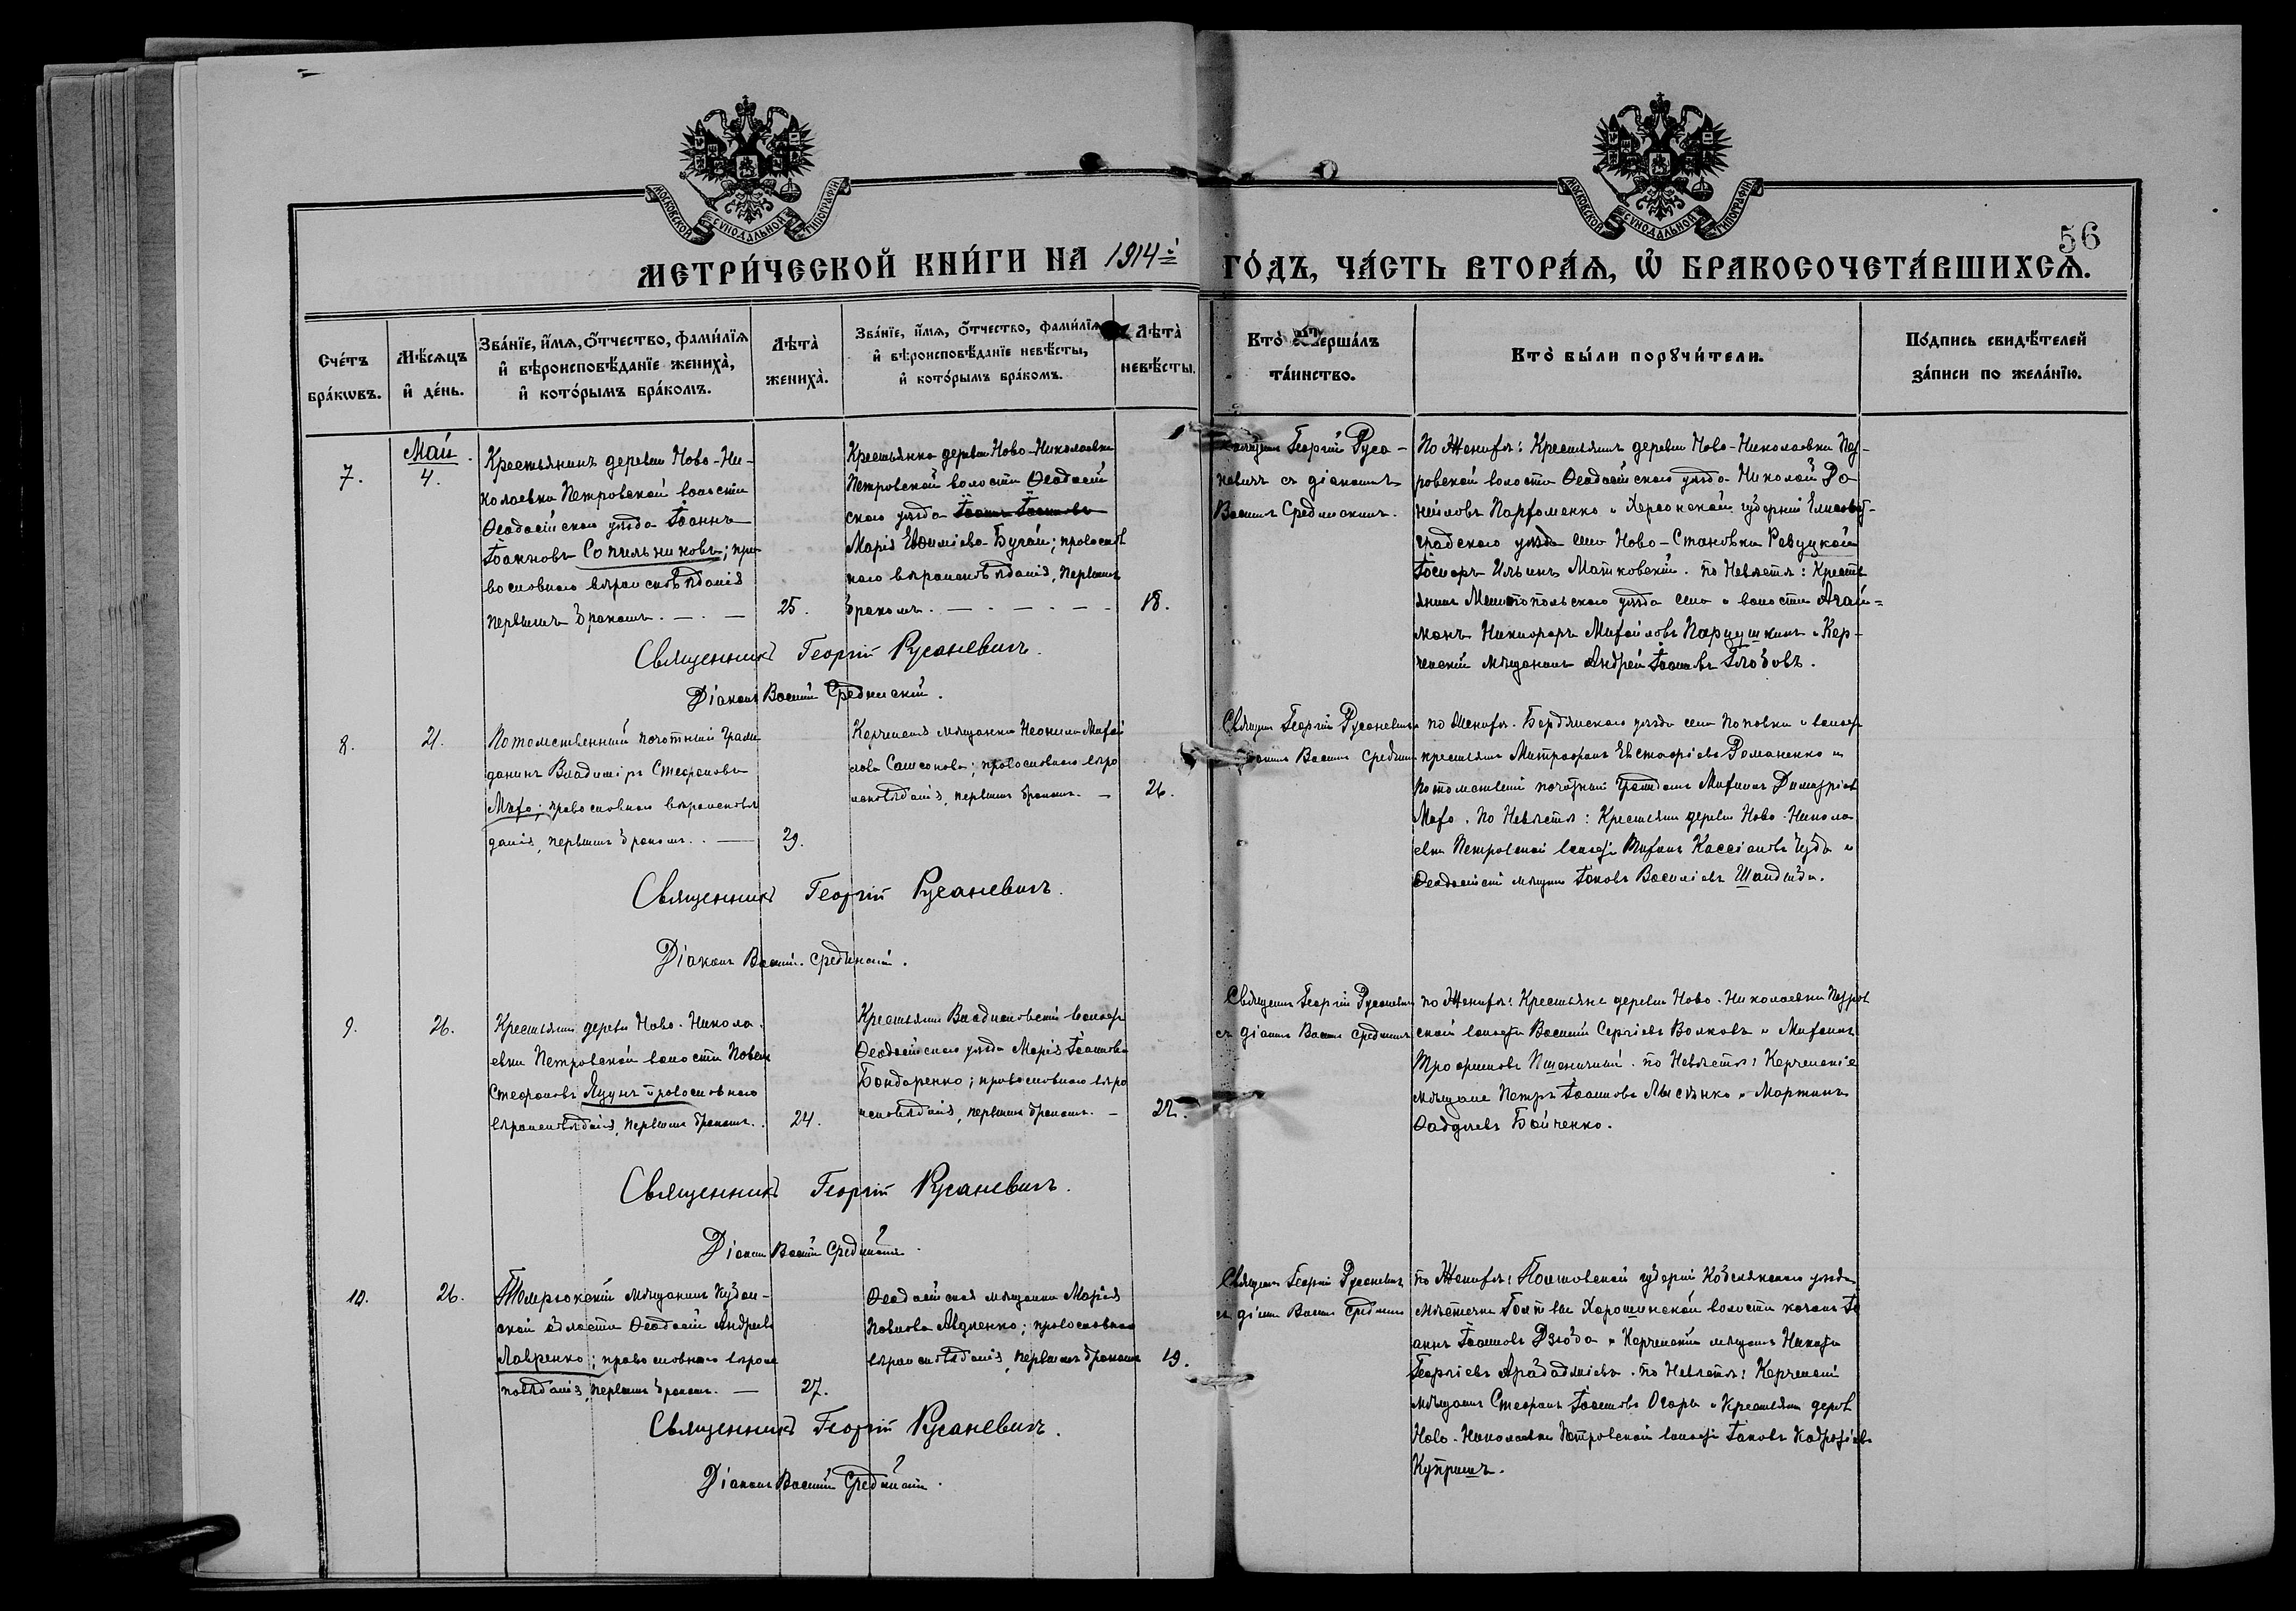 МОСКОВСКОЙ СѴНОДАЛЬНОЙ ТИПОГРАФІИ
МОСКОВСКОЙ СѴНОДАЛЬНОЙ ТИПОГРАФІИ
56
МЕТРИ́ЧЕСКОЙ КНИ́ГИ НА 1914 ГО́ДЪ, ЧА́СТЬ ВТОРА́Ѧ, Ѡ҆ БРАКОСОЧЕТА́ВШИХСѦ.
Сче́тъ бра́кѡвъ.
Мѣ́сѧцъ и҆ де́нь.
Зва́нїе, и҆́мѧ, ѻ҆́тчество, фами́лїѧ
и҆ вѣроисповѣ́данїе жениха̀,
и҆ кото́рымъ бра́комъ.
Лѣта̀ жениха̀.
Зва́нїе, и҆́мѧ, ѻ҆́тчество, фами́лїѧ
и҆ вѣроисповѣ́данїе невѣ́сты,
и҆ кото́рымъ бра́комъ.
Лѣта̀ невѣ́сты.
Кто̀ соверша́лъ
та́инство.
Кто̀ бы́ли порꙋчи́тели.
По́дпись свидѣ́телей
за́писи по жела́нїю.
7.
Май
4.
Крестьянинъ деревни Ново-Ни-
колаевки Петровской волости
Ѳеодосійскаго уѣзда Іоаннъ
Іоанновъ Сопильниковъ; пра-
вославнаго вѣроисповѣданія
первымъ бракомъ. —
25.
Крестьянка деревни Ново-Николаевки
Петровской волости Ѳеодосій
скаго уѣзда Іоаннъ Іоанновъ
Марія Евѳиміева Бугай; православ
наго вѣроисповѣданія, первымъ
бракомъ. — . — . — -
18.
Священ Георгій Руса-
невичъ съ діакономъ
Василіемъ Срединскимъ.
По Женихѣ: Крестьянинъ деревни Ново-Николаевки Пет-
ровской волости Ѳеодосійскаго уѣзда Николай Да
ніиловъ Парфоменко и Херсонской губерніи Елисавет-
градскаго уѣзда села Ново-Становки Ревуцкой
Іосифъ Ильинъ Матковскій. по Невѣстѣ: Кресть
янинъ Мелитопольскаго уѣзда села и волости Агай-
манъ Никифоръ Михайловъ Парцушкинъ и Кер-
ченскій мѣщанинъ Андрей Іоанновъ Глобовъ.
Священникъ Георгій Русаневичъ.
Діаконъ Василій Срединскій.
8.
21.
Потомственный почотный граж
данинъ Владиміръ Стефановъ
Махо; православнаго вѣроисповѣ
данія, первымъ бракомъ. . —
29.
Керченская мѣщанка Неонила Михай
лова Самсонова; православнаго вѣро
исповѣданія, первымъ бракомъ. —
26.
Священ Георгій Русаневичъ
діаконъ Васил Средин
по Женихѣ. Бердянскаго уѣзда села Поповки и волост
крестьянинъ Митрофанъ Евстафіевъ Романенко и
потомствений почотный Гражданинъ Михаилъ Димитріев
Махо. По Невѣстѣ: Крестьянин деревни Ново-Никола
евки Петровской волост Михаилъ Кассіановъ Чуба и
Ѳеодосійскі мѣщанин Іаковъ Василіевъ Шандыба.
Священникъ Георгій Русаневичъ.
Діаконъ Василій Срединскій.
9.
26.
Крестьянин дерев Ново-Никола-
евки Петровской волости Павелъ
Стефановъ Яцунъ православнаго
вѣроисповѣданія, первымъ бракомъ. .
24.
Крестьянка Владиславской волост
Ѳеодосійскаго уѣзда Марія Іоаннова
Бондаренко; православнаго вѣро
исповѣданія, первымъ бракомъ. —
22.
Священ Георгій Русаневич
съ діаконъ Васил Средин
по Женихѣ: Крестьяне деревни Ново-Николаевки Петров
ской волости Василій Сергіевъ Волковъ и Михаилъ
Трофимовъ Пшеничный. по Невѣстѣ: Керченскіе
мѣщане Петръ Іоанновъ Лысенко и Мартинъ
Ѳаддеевъ Бойченко.
Священникъ Георгій Русаневичъ.
Діакон Василій Срединскій.
10.
26.
Темрюкскій мѣщанинъ Кубан-
ской области Ѳеодосій Андреевъ
Лавренко; православнаго вѣроис
повѣданія, первымъ бракомъ. —
27.
Ѳеодосійская мѣщанка Марія
Павлова Авдіенко; православнаго
вѣроисповѣданія, первымъ бракомъ
19.
Священ Георгій Русаневичъ
съ діакон Васил Средин
по Женихѣ: Полтовской губерніи Кобелякскаго уѣзда
мѣстечка Голтвы Хорошинской волости козакъ Іо
аннъ Іоанновъ Дзюба и Керченскій мѣщанинъ
Георгіевъ. по Невѣстѣ: Керченскій
мѣщанинъ Стефанъ Іоанновъ Огарь и Крестьянин дерев
Ново-Николаевки Петровской волост Іаковъ
Купришъ.
Священникъ Георгій Русаневичъ.
Діаконъ Василій Срединскій.